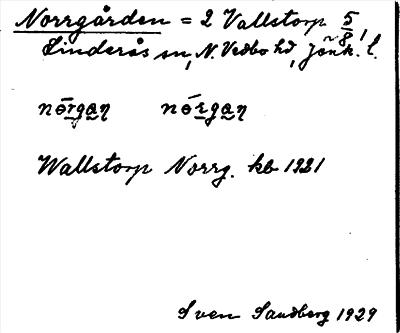 Norrgården = 2 Vallstorp 5/8,
Linderås sn, N. Vedbo hd, Jönk. l.
nōrgaŋ nórgaŋ
Wallstorp Norrg. kb 1921
Sven Sandberg 1929